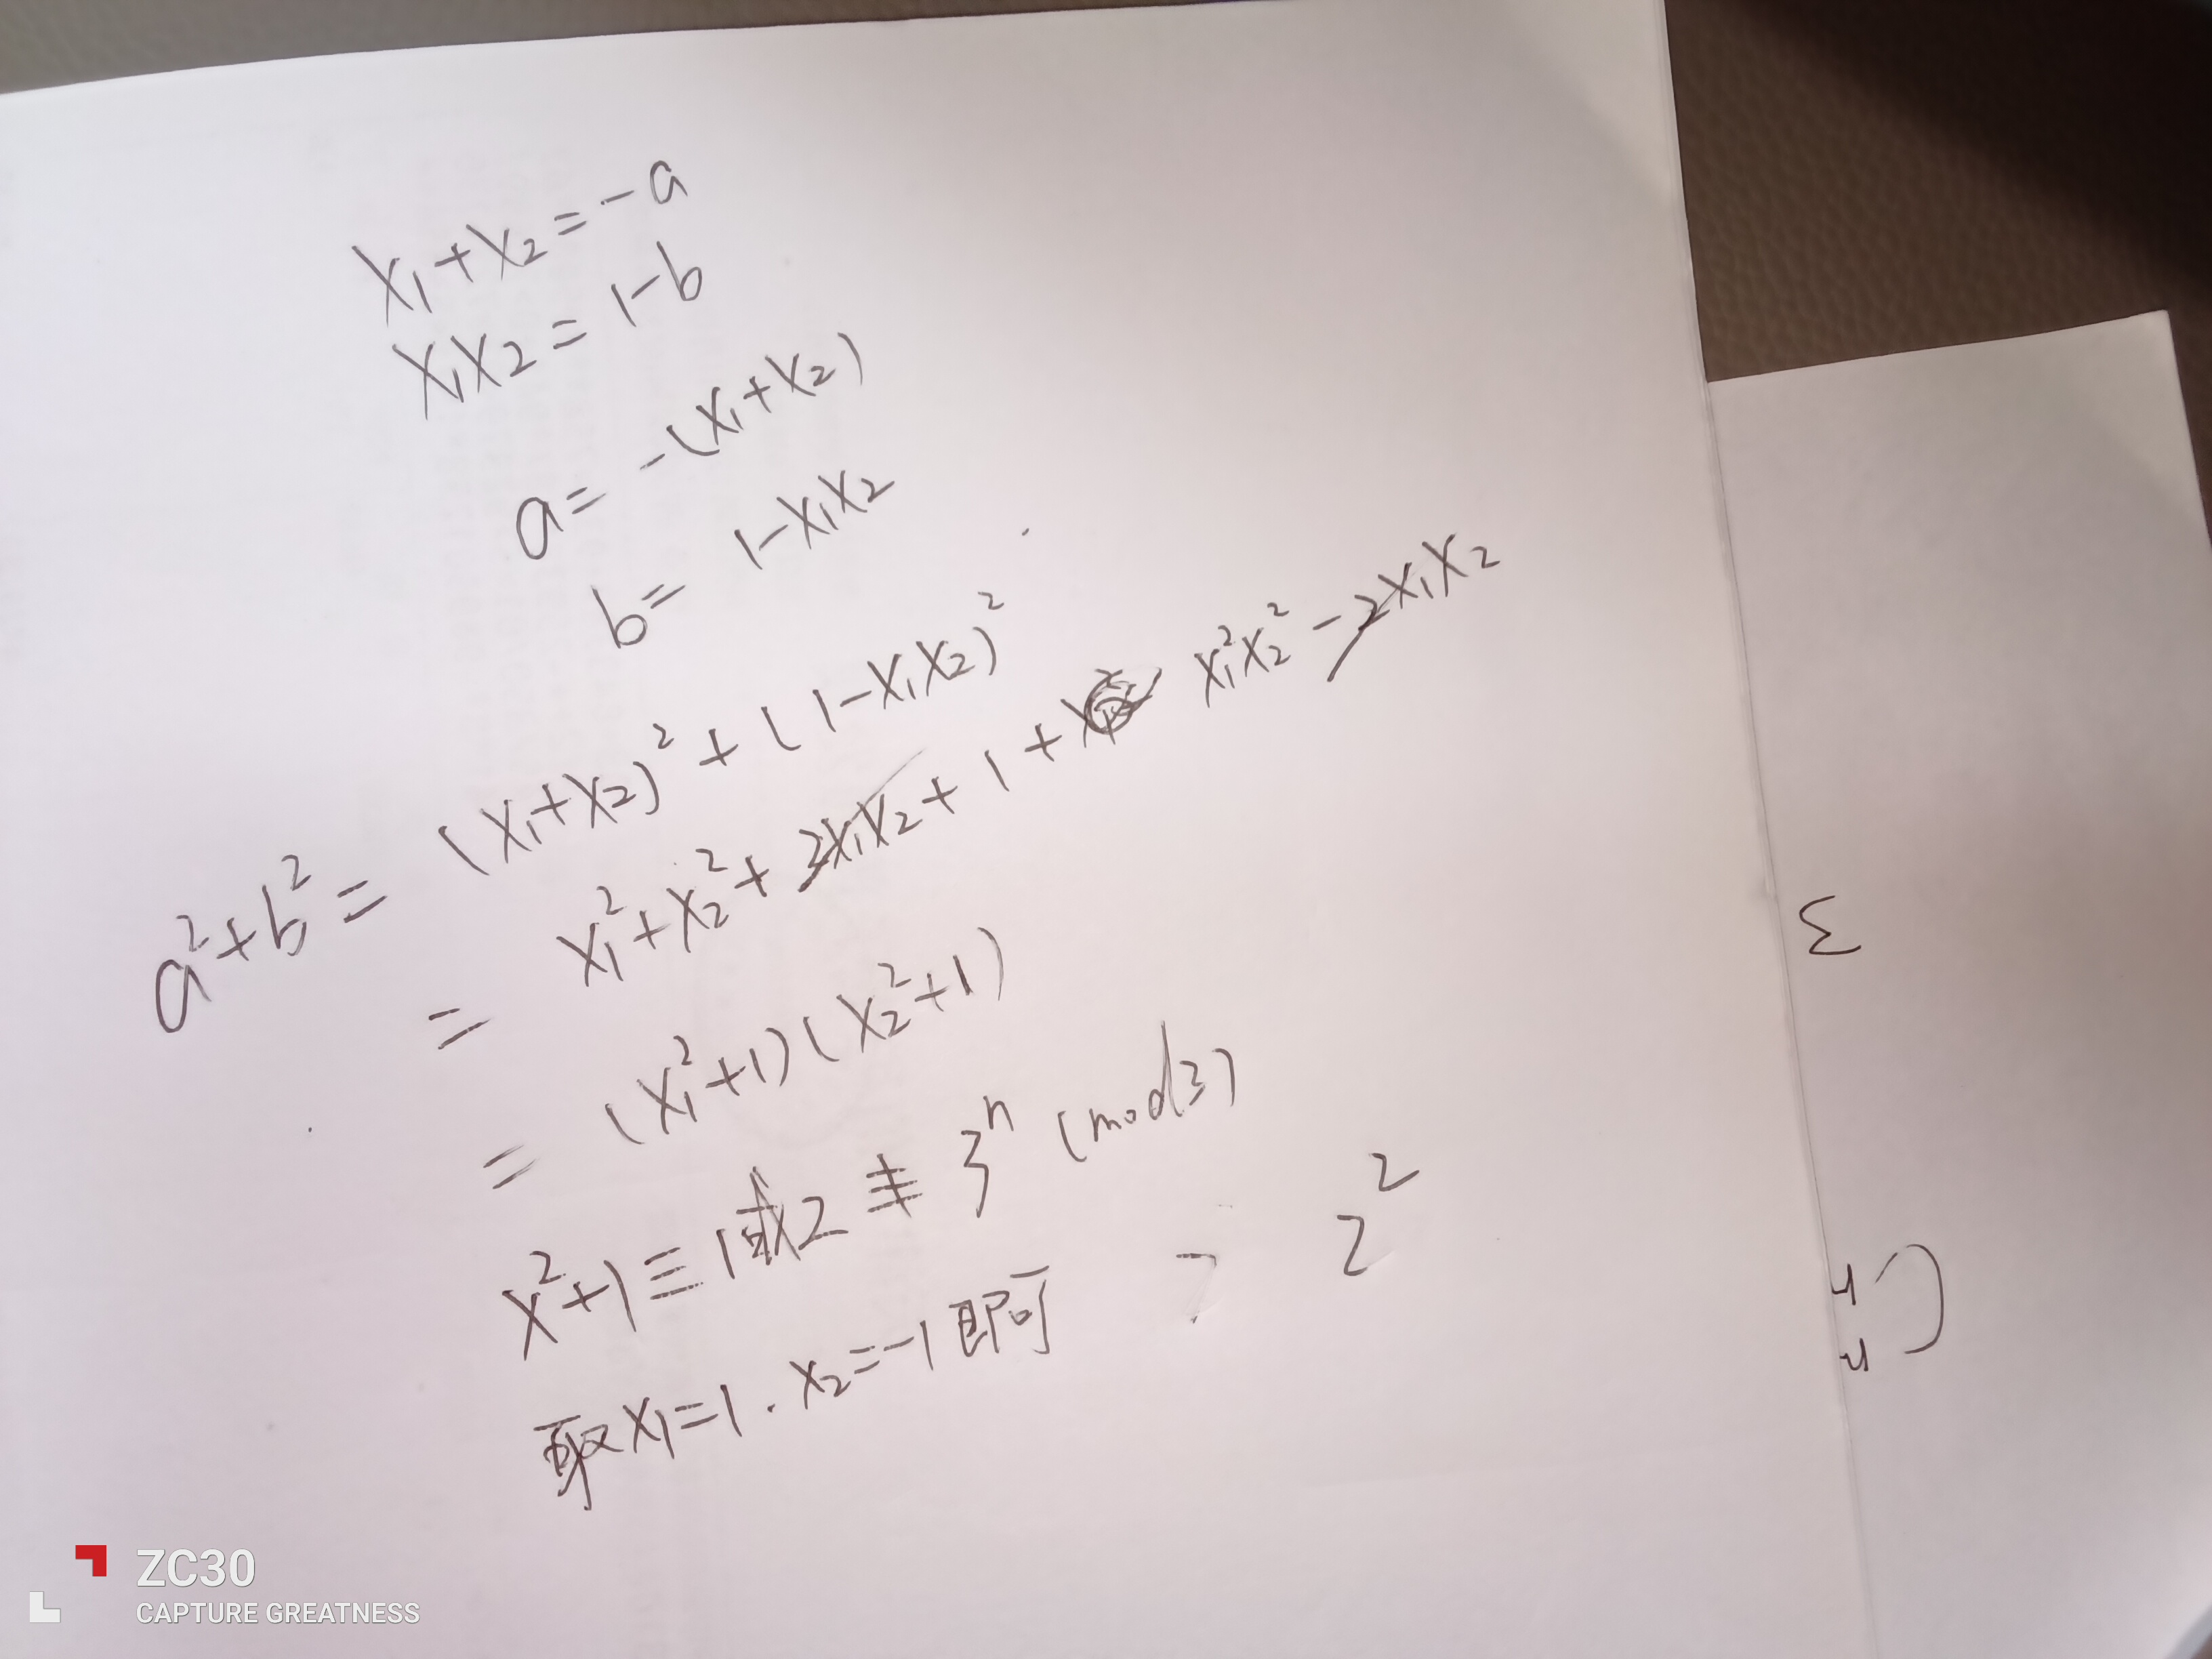 x₁+x₂=-a
x₁x₂=1-b
a=-(x₁+x₂)
b=1-x₁x₂
a²+b²=(x₁+x₂)²+(1-x₁x₂)²
=x₁²+x₂²+2x₁x₂+1+x₁²x₂²-2x₁x₂
=(x₁²+1)(x₂²+1)
x²+1≡1或2≢3ⁿ(mod3)
取x₁=1.x₂=-1即可
2²
3
ZC30
CAPTURE GREATNESS